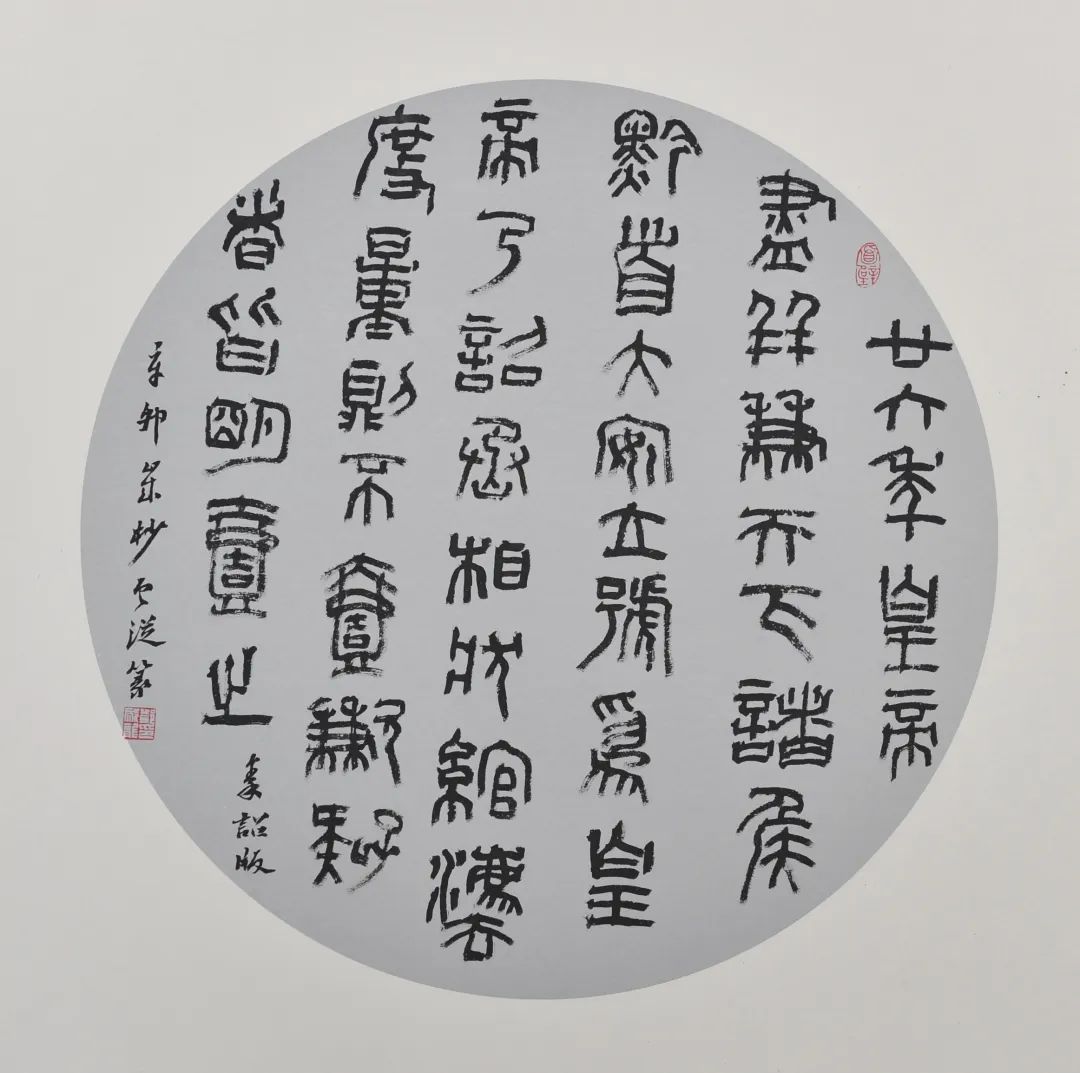 廿六年皇帝
盡并兼天下諸侯
黔首大安立號為皇
帝乃詔丞相狀綰灋
度量則不壹歉疑
者皆明壹之
秦詔版
辛卯歲杪云從篆